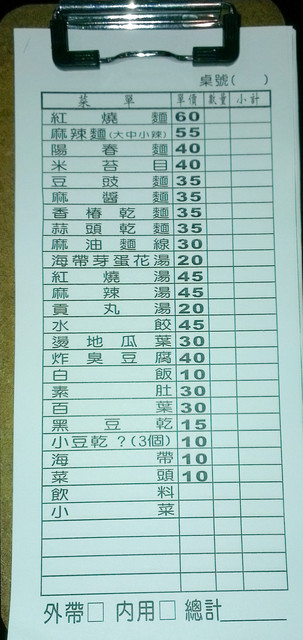 桌號( )
菜單 單價 數量 小計
紅燒麵 60
麻辣麵(大中小辣) 55
陽春麵 40
米苔目 40
豆豉麵 35
麻醬麵 35
香椿乾麵 35
蒜頭乾麵 35
麻油麵線 30
海帶芽蛋花湯 20
紅燒湯 45
麻辣湯 45
貢丸湯 20
水餃 45
燙地瓜葉 30
炸臭豆腐 40
白飯 10
素肚 30
百葉 30
黑豆乾 15
小豆乾?(3個) 10
海帶 10
菜頭 10
飲料
小菜
外帶□ 內用□ 總計______